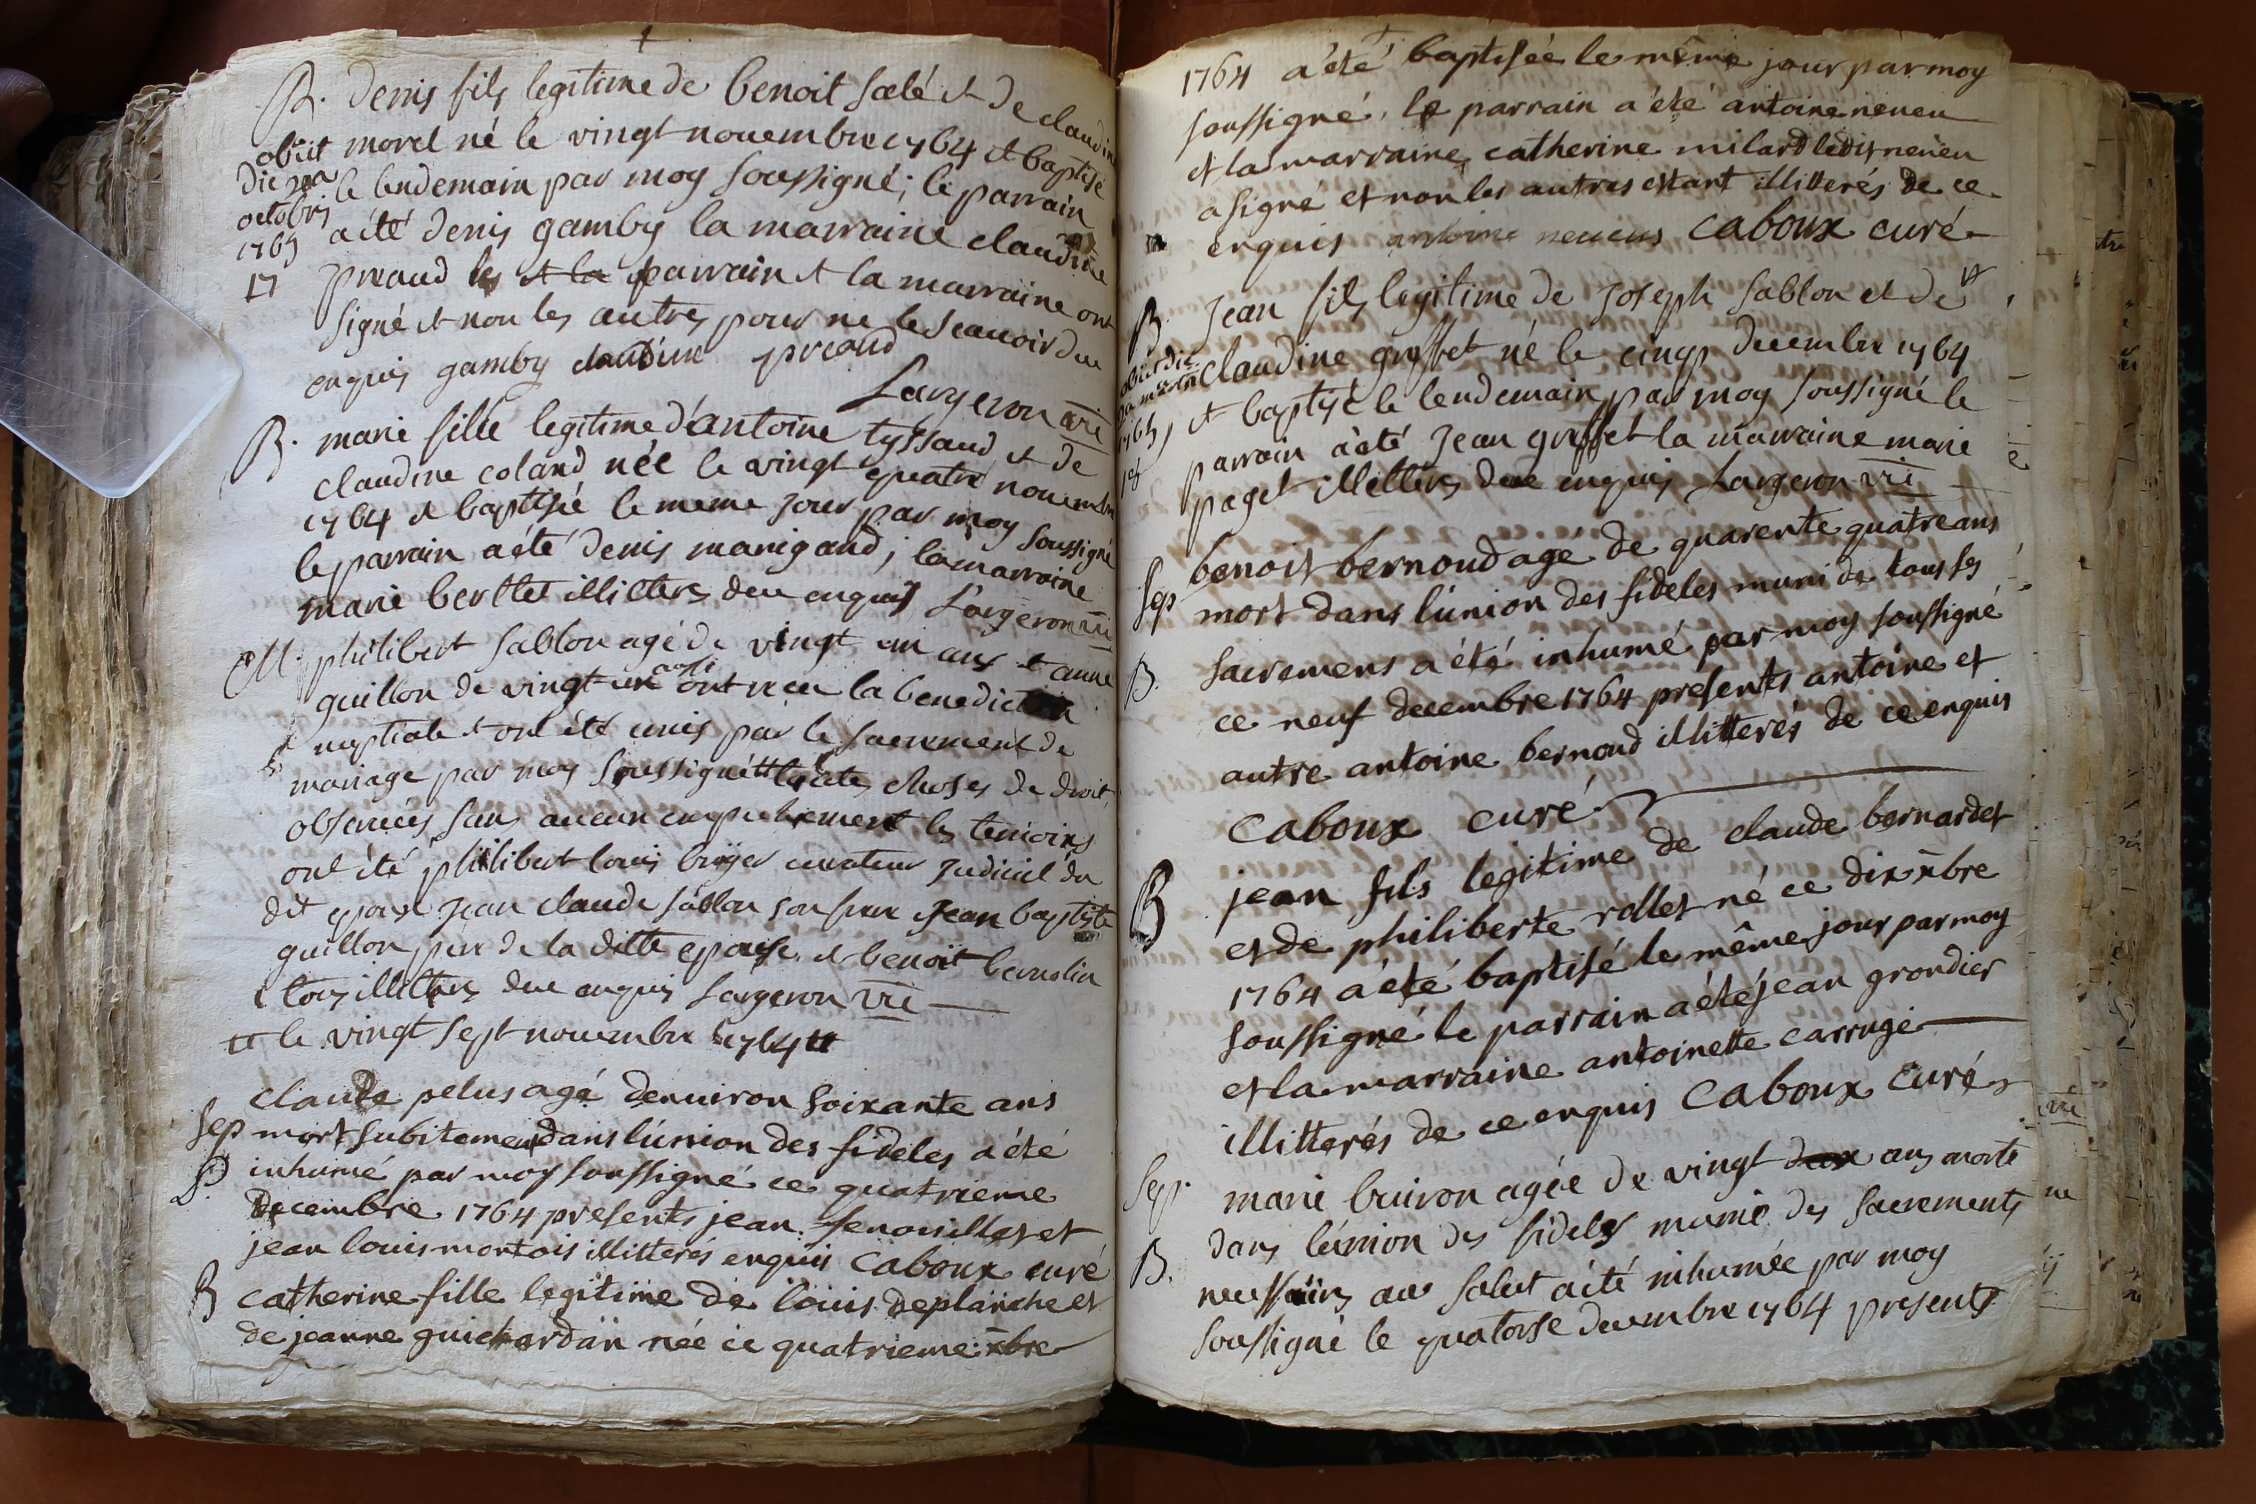 B. denis fils legitime de benoit salé et de claudine
obiit morel né le vingt novembre 1764 et baptisé
die 20a le lendemain par moy soussigné; le parrain
octobris a été denis gamby la marraine claudine
1765 preaud les et la parrain et la marraine ont
17 signé et non les autres pour ne le scavoir de ce
enquis gamby claudine preaud
Largeron vic
B. marie fille legitime d'antoine tyssaud et de
claudine coland née le vingt quatre novembre
1764 et baptisée le meme jour par moy soussigné
le parrain a été denis manigand; la marraine
marie berthet illitterés de ce enquis Largeron vic
M. philibert sablon agé de vingt un ans et anne
guillon de vingt un aussi ont receu la benediction
nuptiale et ont été unis par le sacrement de
mariage par moy soussigné tt toutes choses de droit
observées sans aucun empechement les temoins
ont été philibert louis curateur judiciel du
dit epoux jean claude sablon son frere jean baptiste
guillon père de la ditte epouse et benoit bernolin
tous illitterés de ce enquis Largeron vic
tt le vingt sept novembre 1764 tt
claude pelus agé denviron soixante ans
Sep mort subitement dans l'union des fideles a été
B. inhumé par moy soussigné ce quatrieme
decembre 1764 presents jean fenouillet et
jean louis mortois illitterés enquis Caboux curé
B catherine fille legitime de louis deplanche et
de jeanne guichardan née ce quatrieme xbre
1764 a été baptisée le même jour par moy
soussigné, le parrain a été antoine neveu
et la marraine catherine milard ledit neveu
a signé et non les autres estant illitterés de ce
enquis antoine neveus Caboux curé
B. Jean fils legitime de Joseph Sablon et de
obiit die claudine griffet né le cinq decembre 1764
1765 et baptisé le lendemain par moy soussigné le
18 parrain a été Jean griffet la marraine marie
paget illitterés de ce enquis Largeron vic
benoit bernoud agé de quarente quatre ans
Sep mort dans l'union des fideles muni de tous ses
B. sacremens a été inhumé par moy soussigné
ce neuf decembre 1764 presents antoine et
autre antoine bernoud illitterés de ce enquis
Caboux curé
B jean fils legitime de claude bernardet
et de philiberte rollet né ce dix xbre
1764 a été baptisé le même jour par moy
soussigné le parrain a été jean grondier
et la marraine antoinette carruge
illitterés de ce enquis Caboux curé
Sep. marie buiron agée de vingt deux ans morte
dans l'union des fideles munie des sacrements
B. necessaires au salut a été inhumée par moy
soussigné le quatorse decembre 1764 presents